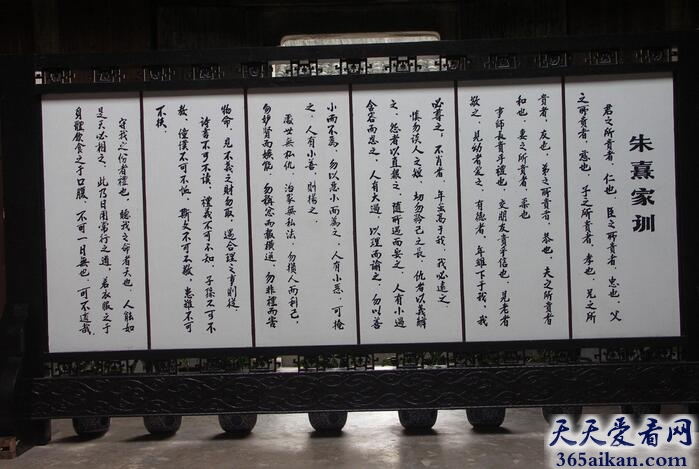 朱熹家訓
君之所貴者，仁也，臣之所貴者，忠也，父
之所貴者，慈也，子之所貴者，孝也，兄之所
貴者，友也，弟之所貴者，恭也，夫之所貴者
和也，妻之所貴者，柔也
事師長貴乎禮也，交朋友貴乎信也，見老者
敬之，見幼者愛之，有德者，年雖下于我，我
必尊之，不肖者，年雖高于我，我必遠之
慎勿談人之短，切勿矜己之長，仇者以義解
之，怨者以直報之，隨所遇而安之，人有小過
含容而忍之，人有大過，以理而諭之，勿以善
小而不為，勿以惡小而為之，人有小惡，可掩
之，人有小善，則揚之，
處世無私仇，治家無私法，勿損人而利己，
勿妒賢而嫉能，勿稱忿而報橫逆，勿非禮而害
物命，見不義之財勿取，遇合理之事則從
詩書不可不讀，禮義不可不知，子孫不可不
教，僮僕不可不恤，斯文不可不敬，患難不可
不扶，
守我之份者禮也，聽我之命者天也，人能如
是天必相之，此乃日用常行之道，若衣服之于
身體飲食之于口腹，不可一日無也，可不謹哉
天天爱看网
365aikan.com